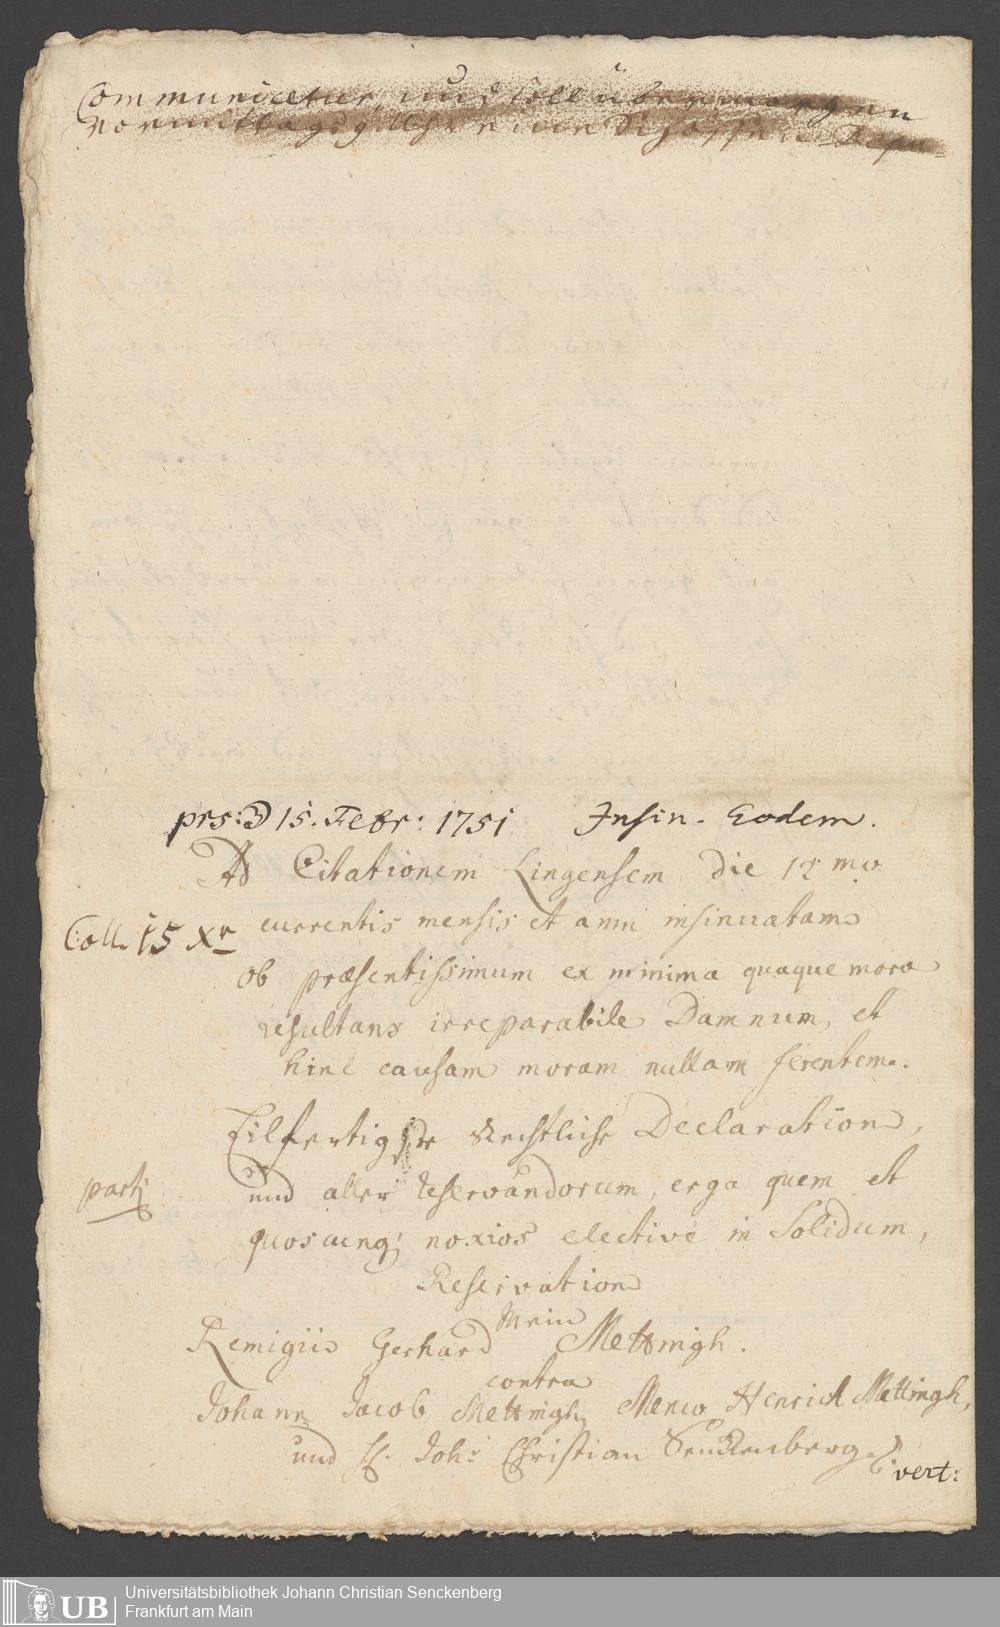 Communicetur, und soll übermorgen
vormittags 9 Uhr eine Schöffen-Depu-
prs: ☽ 15. Febr: 1751 Insin. Eodem.
Ad Citationem Lingensem die 12mo
currentis mensis et anni insinuatam
Coll. 15 Xr
ob præsentissimum ex minima quaque mora
resultans irreparabile Damnum, et
hinc causam moram nullam ferentem.
Eilfertigste Rechtliche Declaration,
und aller reservandorum, erga quem et
partj
quoscunq; noxios elective in Solidum,
Reservation
Mein
Remigii Gerhard Mettingh.
contra
Johann Jacob Mettingh, Menco Henrich Mettingh,
und H. Joh: Christian Senckenberg
vert:
UB Universitätsbibliothek Johann Christian Senckenberg
Frankfurt am Main